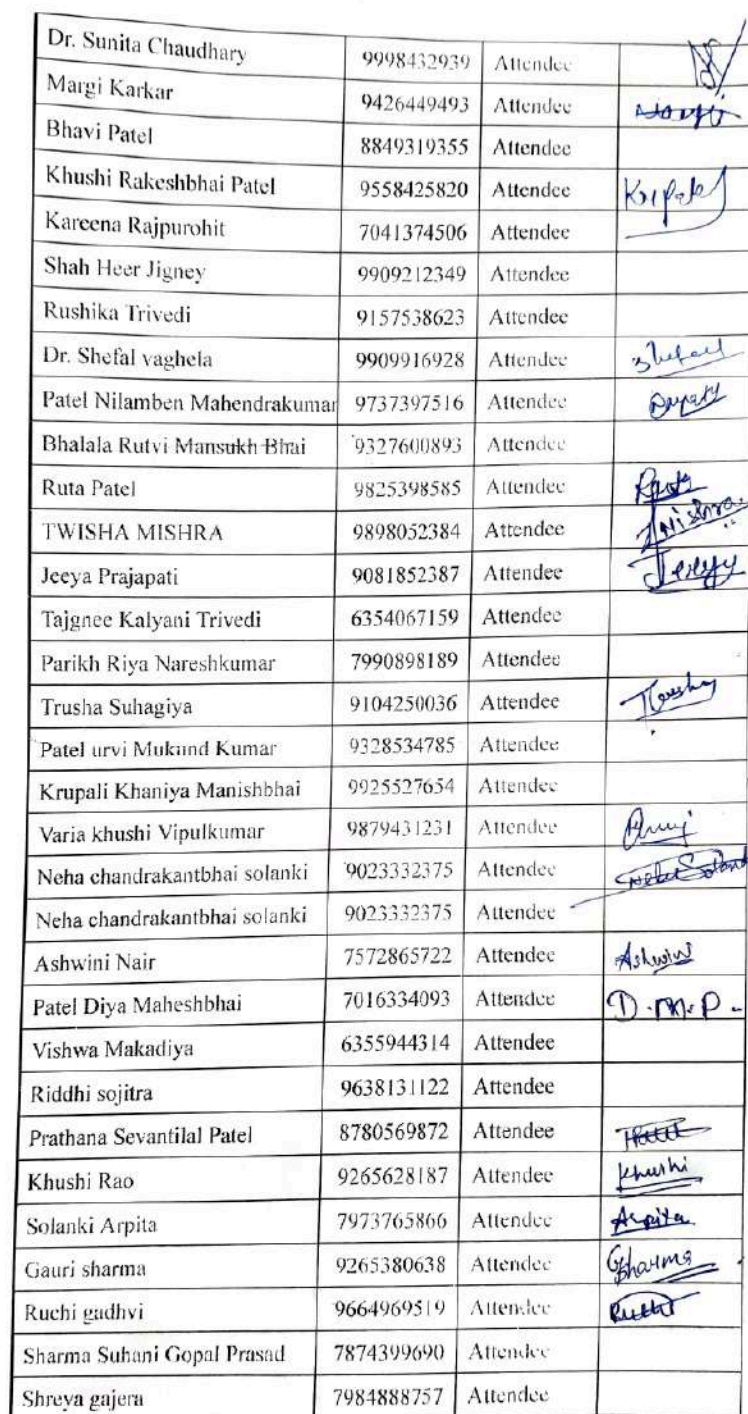 Dr. Sunita Chaudhary 9998432939 Attendee
Margi Karkar 9426449493 Attendee Margi
Bhavi Patel 8849319355 Attendee
Khushi Rakeshbhai Patel 9558425820 Attendee
Kareena Rajpurohit 7041374506 Attendee
Shah Heer Jigney 9909212349 Attendee
Rushika Trivedi 9157538623 Attendee
Dr. Shefal vaghela 9909916928 Attendee
Patel Nilamben Mahendrakumar 9737397516 Attendee
Bhalala Rutvi Mansukh Bhai 9327600893 Attendee
Ruta Patel 9825398585 Attendee
TWISHA MISHRA 9898052384 Attendee
Jeeya Prajapati 9081852387 Attendee
Tajgnee Kalyani Trivedi 6354067159 Attendee
Parikh Riya Nareshkumar 7990898189 Attendee
Trusha Suhagiya 9104250036 Attendee
Patel urvi Mukund Kumar 9328534785 Attendee
Krupali Khaniya Manishbhai 9925527654 Attendee
Varia khushi Vipulkumar 9879431231 Attendee
Neha chandrakantbhai solanki 9023332375 Attendee
Neha chandrakantbhai solanki 9023332375 Attendee
Ashwini Nair 7572865722 Attendee Ashwini
Patel Diya Maheshbhai 7016334093 Attendee D.M.P.
Vishwa Makadiya 6355944314 Attendee
Riddhi sojitra 9638131122 Attendee
Prathana Sevantilal Patel 8780569872 Attendee
Khushi Rao 9265628187 Attendee Khushi
Solanki Arpita 7973765866 Attendee Arpita
Gauri sharma 9265380638 Attendee GSharma
Ruchi gadhvi 9664969519 Attendee Ruchi
Sharma Suhani Gopal Prasad 7874399690 Attendee
Shreya gajera 7984888757 Attendee